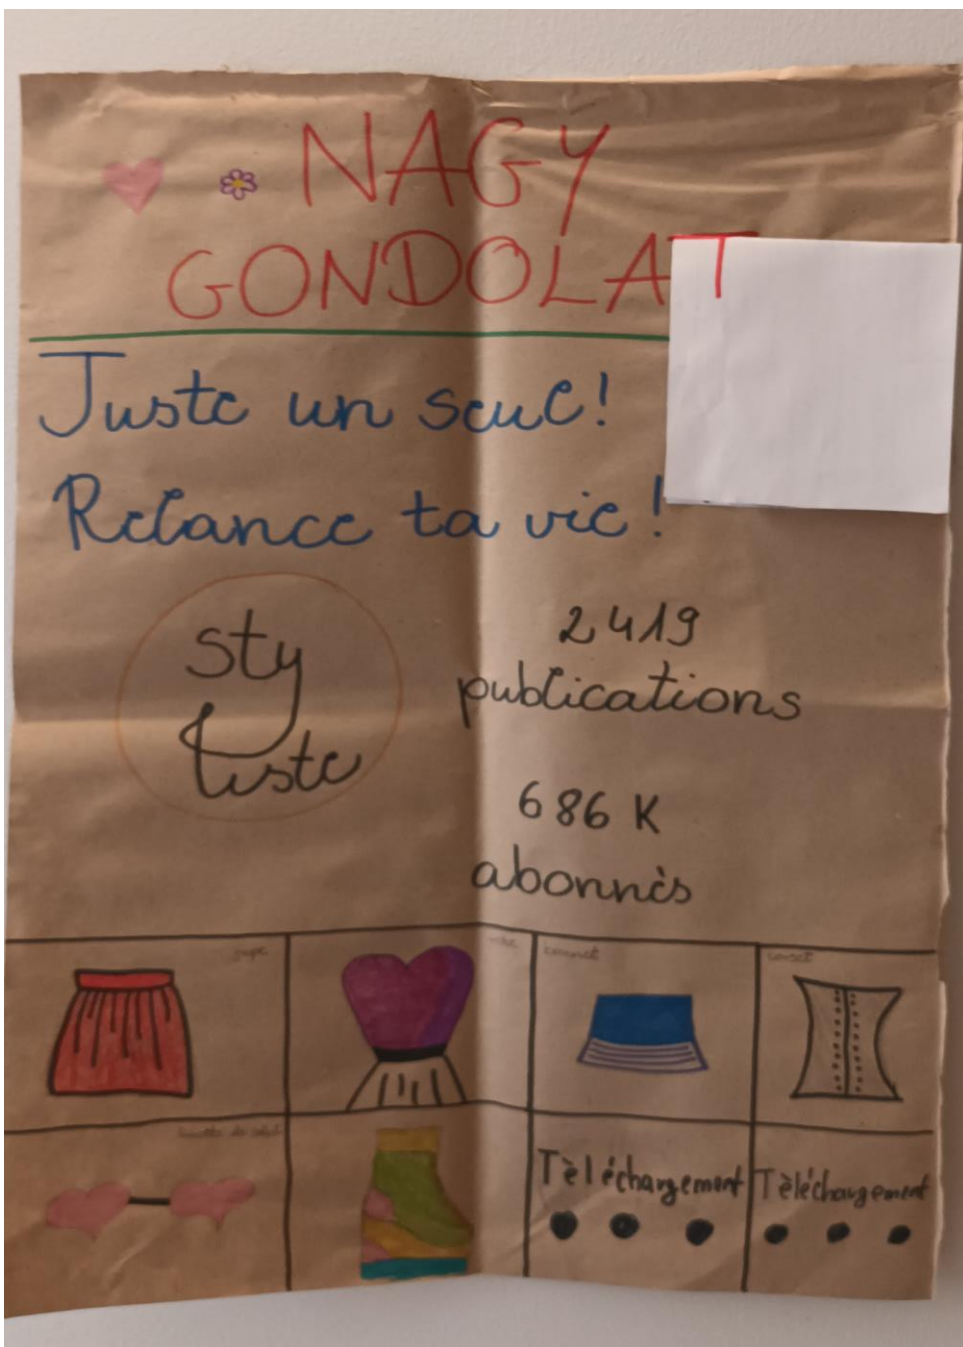 NAGY
GONDOLAT
Juste un seul!
Relance ta vie!
sty
liste
2419
publications
686 K
abonnés
jupe
robe
bonnet
corset
lunette de soleil
Tèléchargement
Tèléchargement